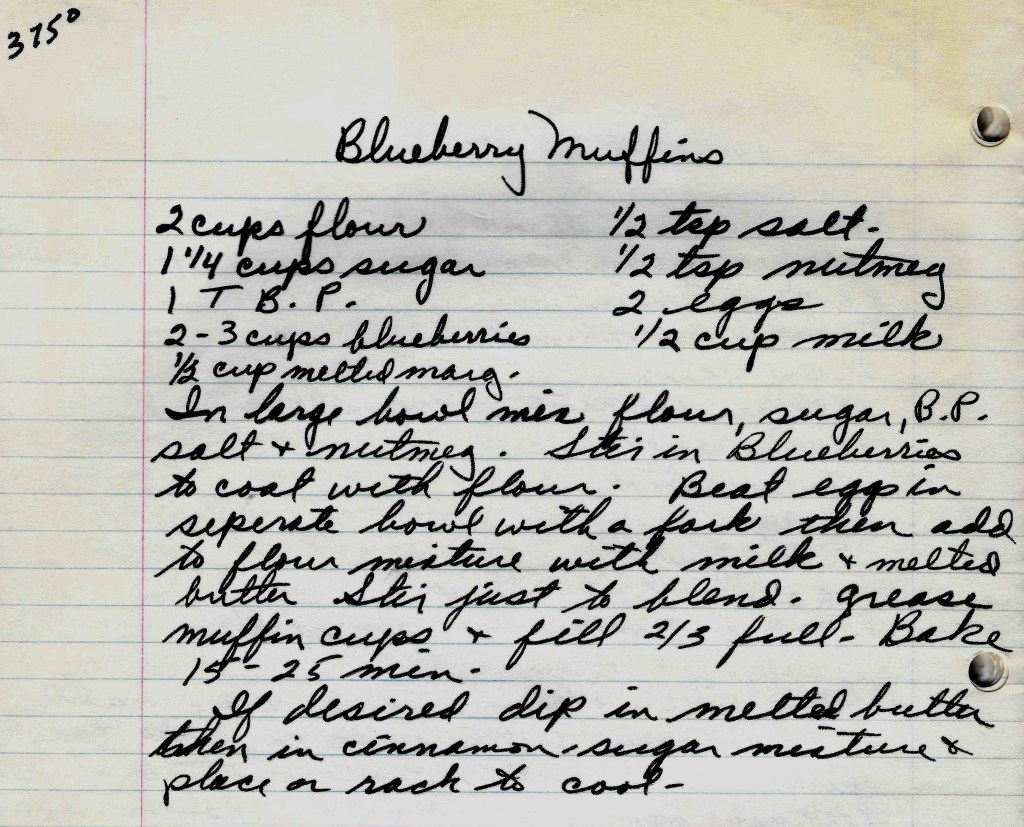 375°
Blueberry Muffins
2 cups flour 1/2 tsp salt.
1 1/4 cups sugar 1/2 tsp nutmeg
1 T B.P. 2 eggs
2-3 cups blueberries 1/2 cup milk
cup melted marg.
In large bowl mix flour, sugar, B.P.
salt + nutmeg. Stir in Blueberries
to coat with flour. Beat egg in
seperate bowl with a fork then add
to flour mixture with milk + melted
butter Stir just to blend. grease
muffin cups + fill 2/3 full - Bake
15-25 min.
If desired dip in melted butter
then in cinnamon-sugar mixture &
place on rack to cool-